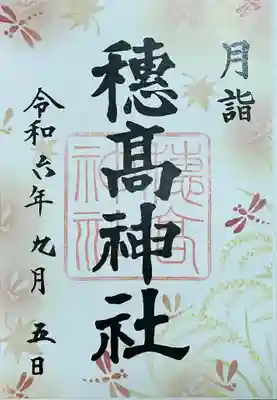 月詣
穂髙神社
穂高神社
令和六年九月五日